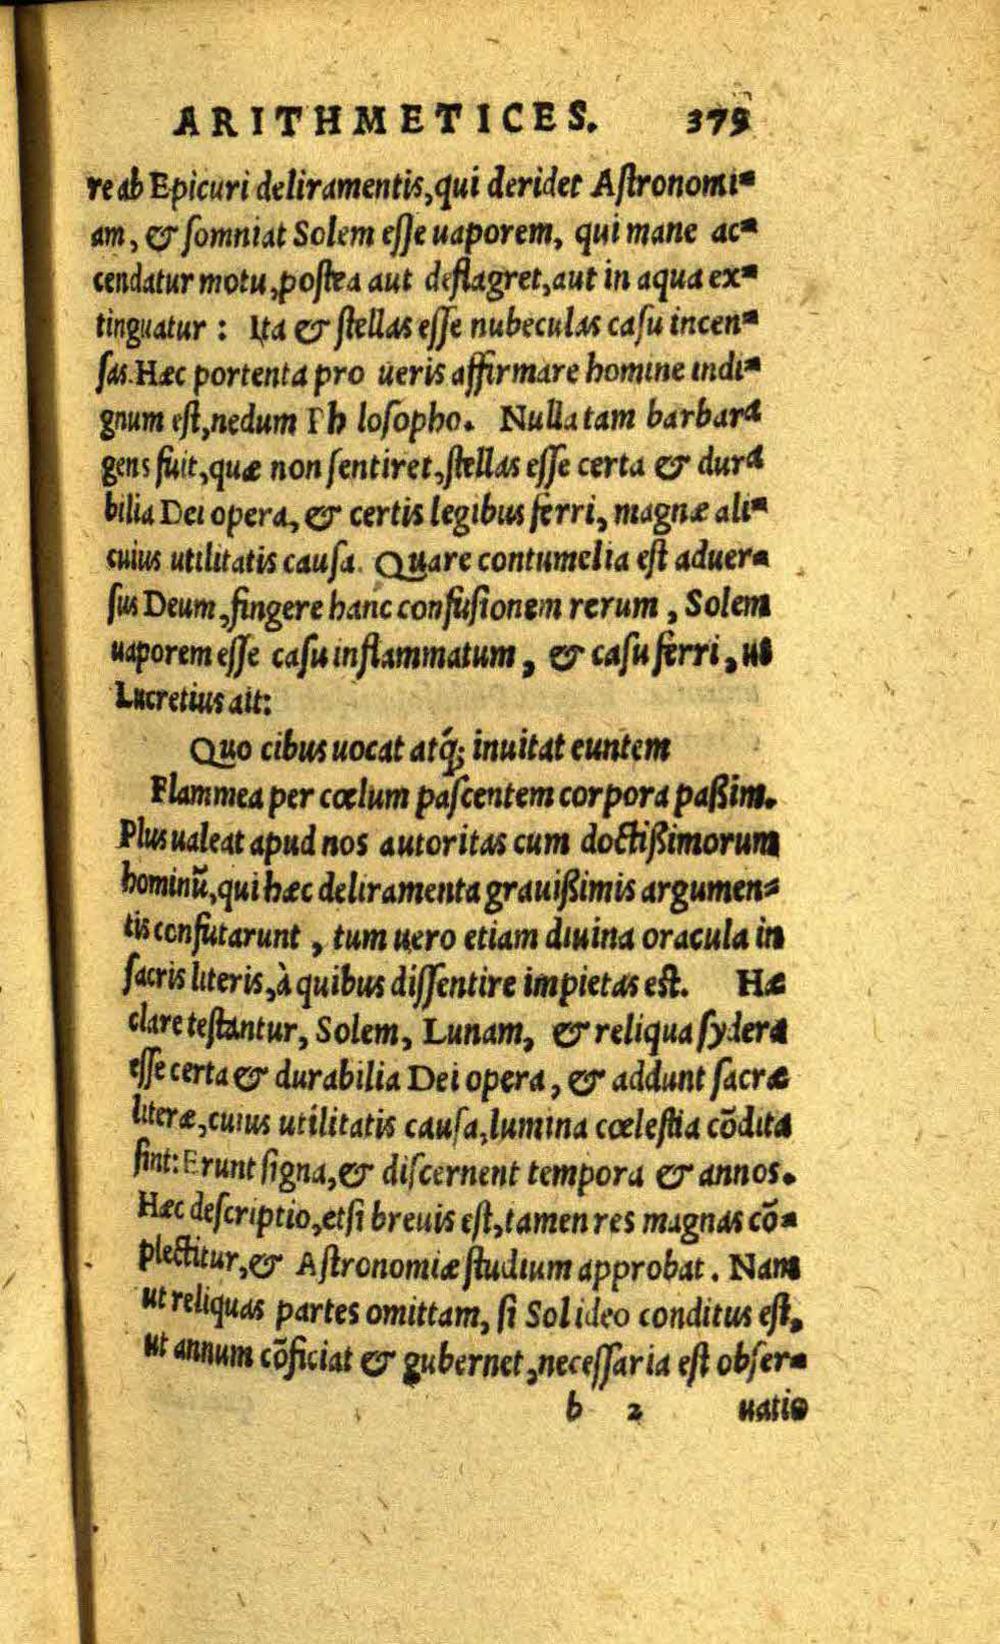 ARITHMETICES. 379
re ab Epicuri deliramentis, qui deridet Aſtronomi-
am, & ſomniat Solem eſſe uaporem, qui mane ac-
cendatur motu, poſtea aut deflagret, aut in aqua ex-
tinguatur : Ita & ſtellas eſſe nubeculas caſu incen-
ſas. Hæc portenta pro ueris affirmare homine indi-
gnum eſt, nedum Ph loſopho. Nulla tam barbara
gens fuit, quæ non ſentiret, ſtellas eſſe certa & dura
bilia Dei opera, & certis legibus ferri, magnæ ali-
cuius utilitatis cauſa. Quare contumelia eſt aduer-
ſus Deum, fingere hanc confuſionem rerum, Solem
uaporem eſſe caſu inflammatum, & caſu ferri, ut
Lucretius ait:
Quo cibus uocat atq́; inuitat euntem
Flammea per cœlum paſcentem corpora paßim.
Plus ualeat apud nos autoritas cum doctißimorum
hominū, qui hæc deliramenta grauißimis argumen-
tis confutarunt, tum uero etiam diuina oracula in
ſacris literis, à quibus diſſentire impietas eſt. Hæ
clare teſtantur, Solem, Lunam, & reliqua ſydera
eſſe certa & durabilia Dei opera, & addunt ſacræ
literæ, cuius utilitatis cauſa, lumina cœleſtia cōdita
ſint: Erunt ſigna, & diſcernent tempora & annos.
Hæc deſcriptio, etſi breuis eſt, tamen res magnas cō-
plectitur, & Aſtronomiæ ſtudium approbat. Nam
ut reliquas partes omittam, ſi Sol ideo conditus eſt,
ut annum cōficiat & gubernet, neceſſaria eſt obſer-
b 2 uatio